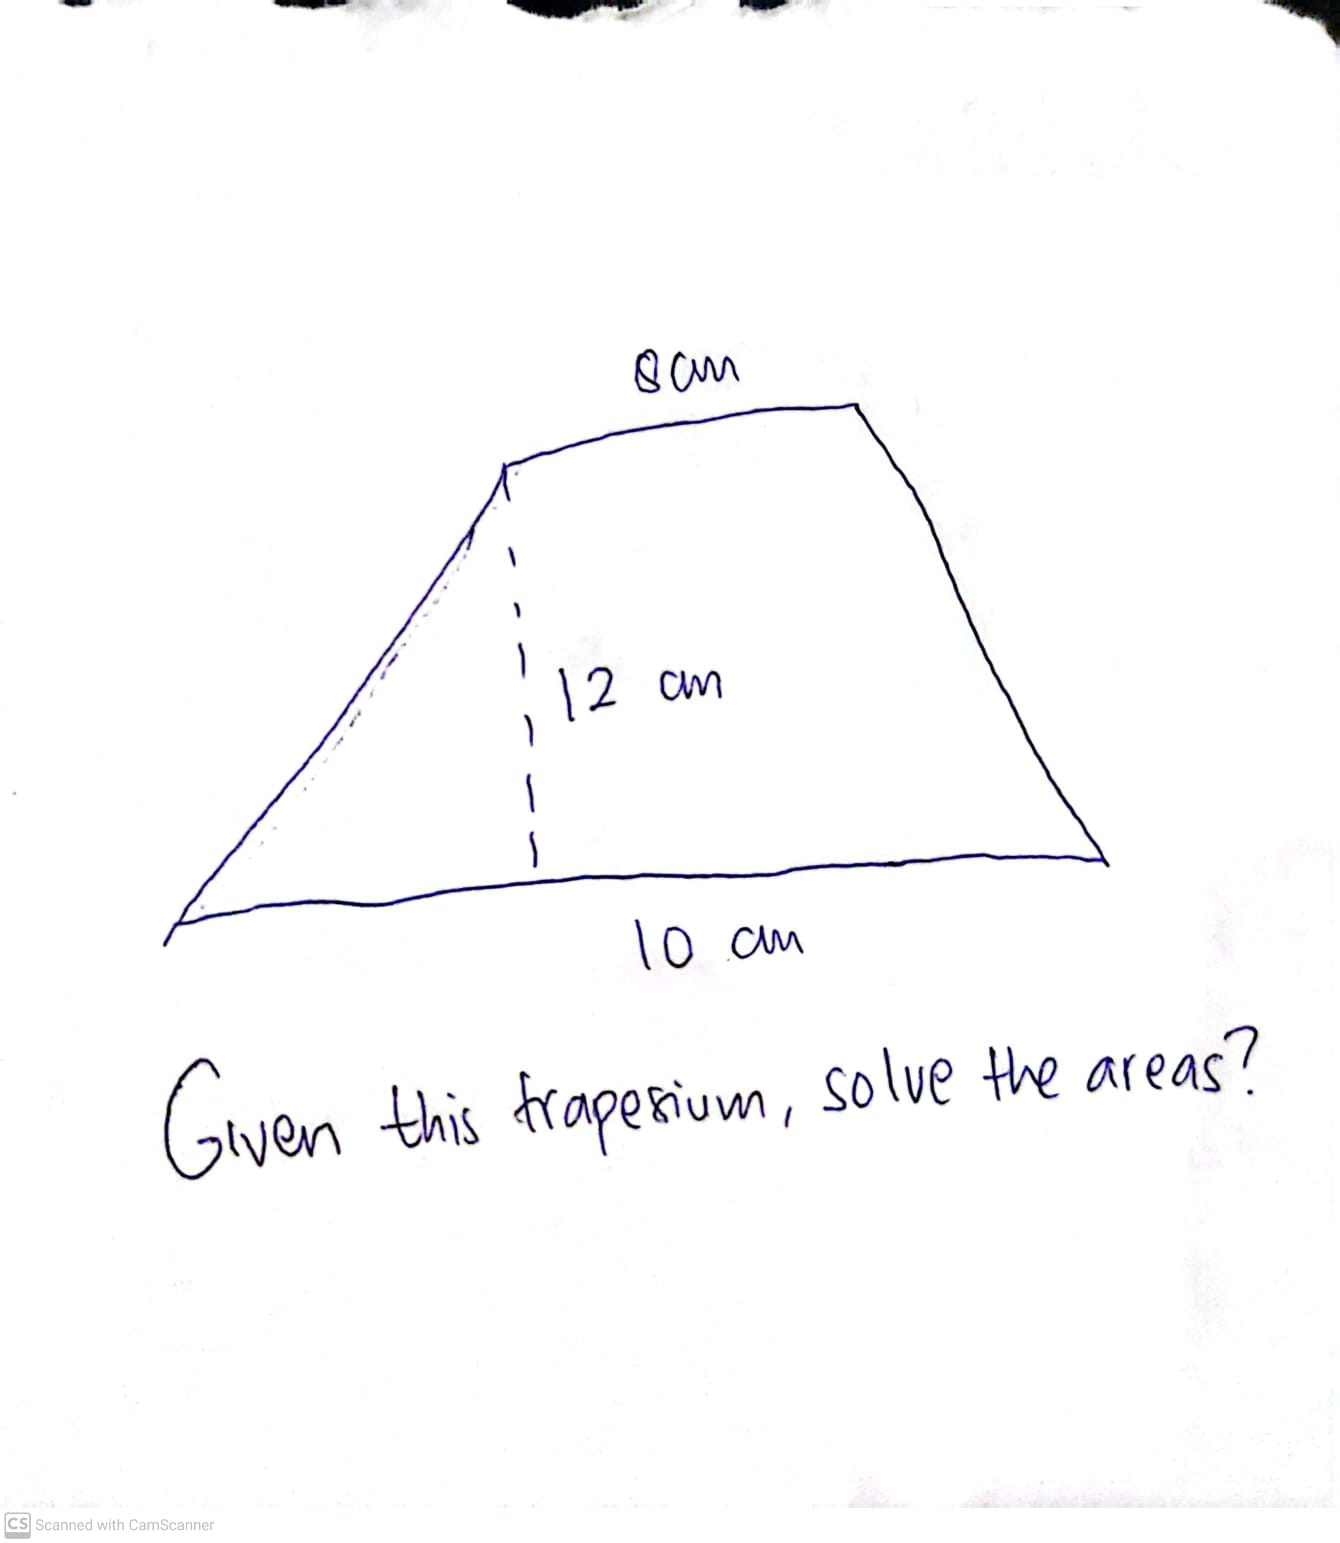 8cm
12 cm
10 cm
Given this trapesium, solve the areas?
CS Scanned with CamScanner